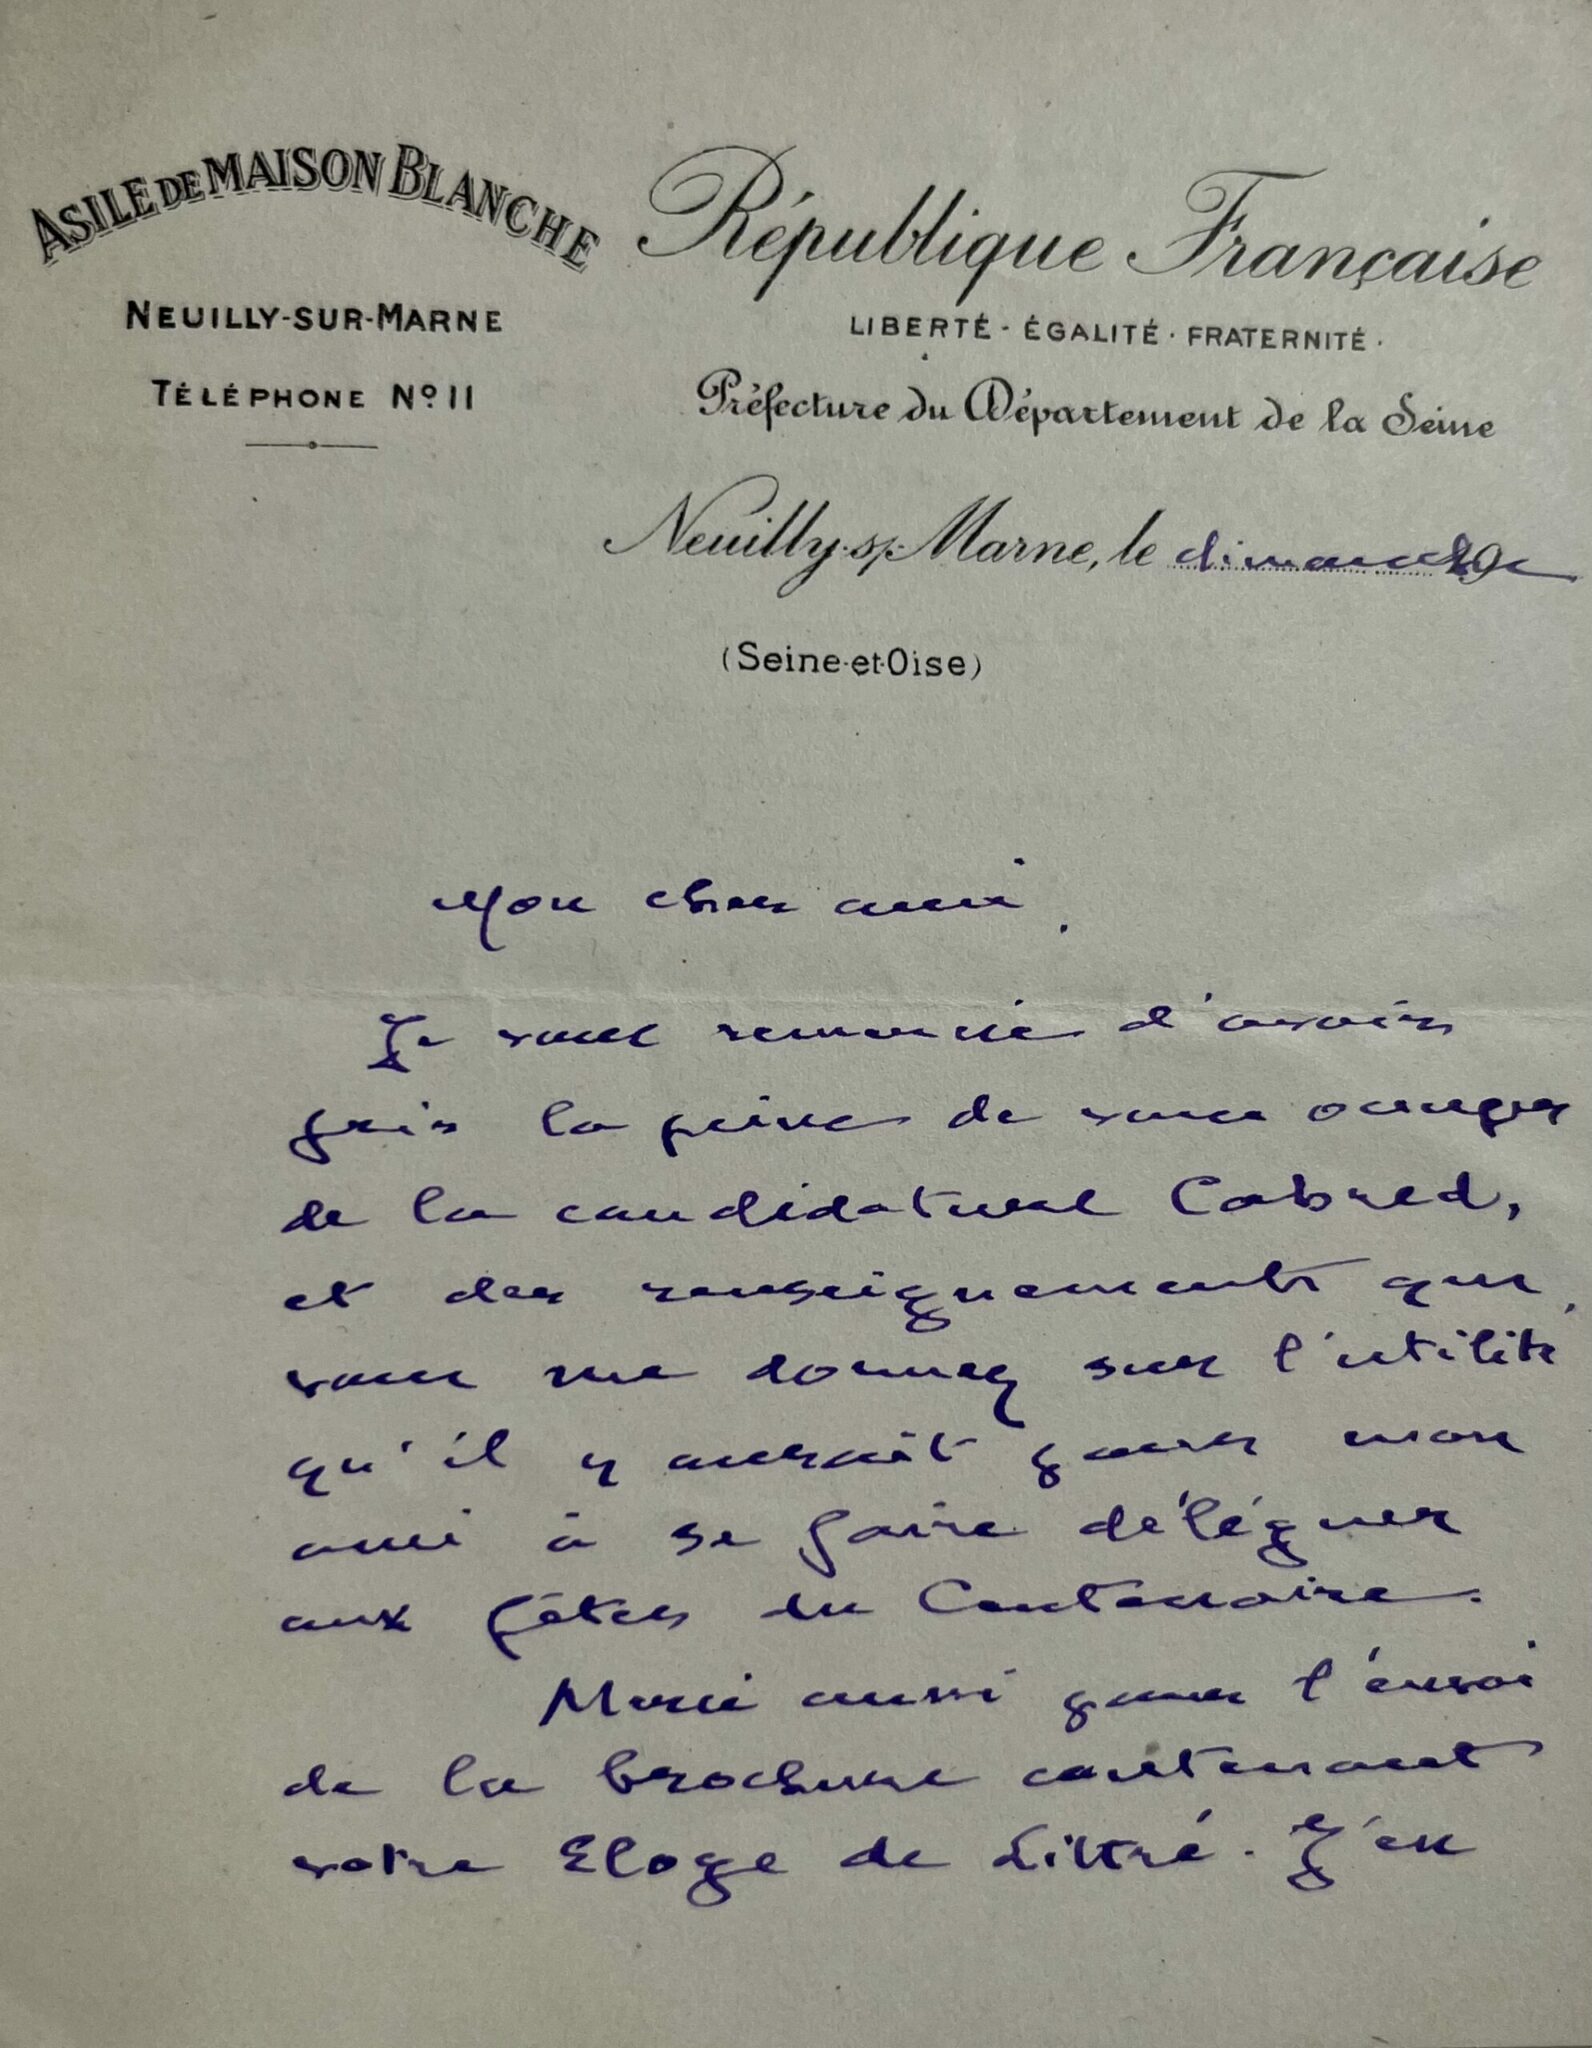 ASILE DE MAISON BLANCHE
NEUILLY-SUR-MARNE
TÉLÉPHONE Nº 11
République Française
LIBERTÉ - ÉGALITÉ - FRATERNITÉ.
Préfecture du Département de la Seine
Neuilly-s/-Marne, le dimanche 19
(Seine-et-Oise)
Mon cher ami,
Je vous remercie d'avoir
pris la peine de vous occuper
de la candidature Cabred,
et des renseignements que
vous me donnez sur l'utilité
qu'il y aurait pour mon
ami à se faire déléguer
aux fêtes du Centenaire.
Merci aussi pour l'envoi
de la brochure contenant
votre Eloge de Littré. J'en